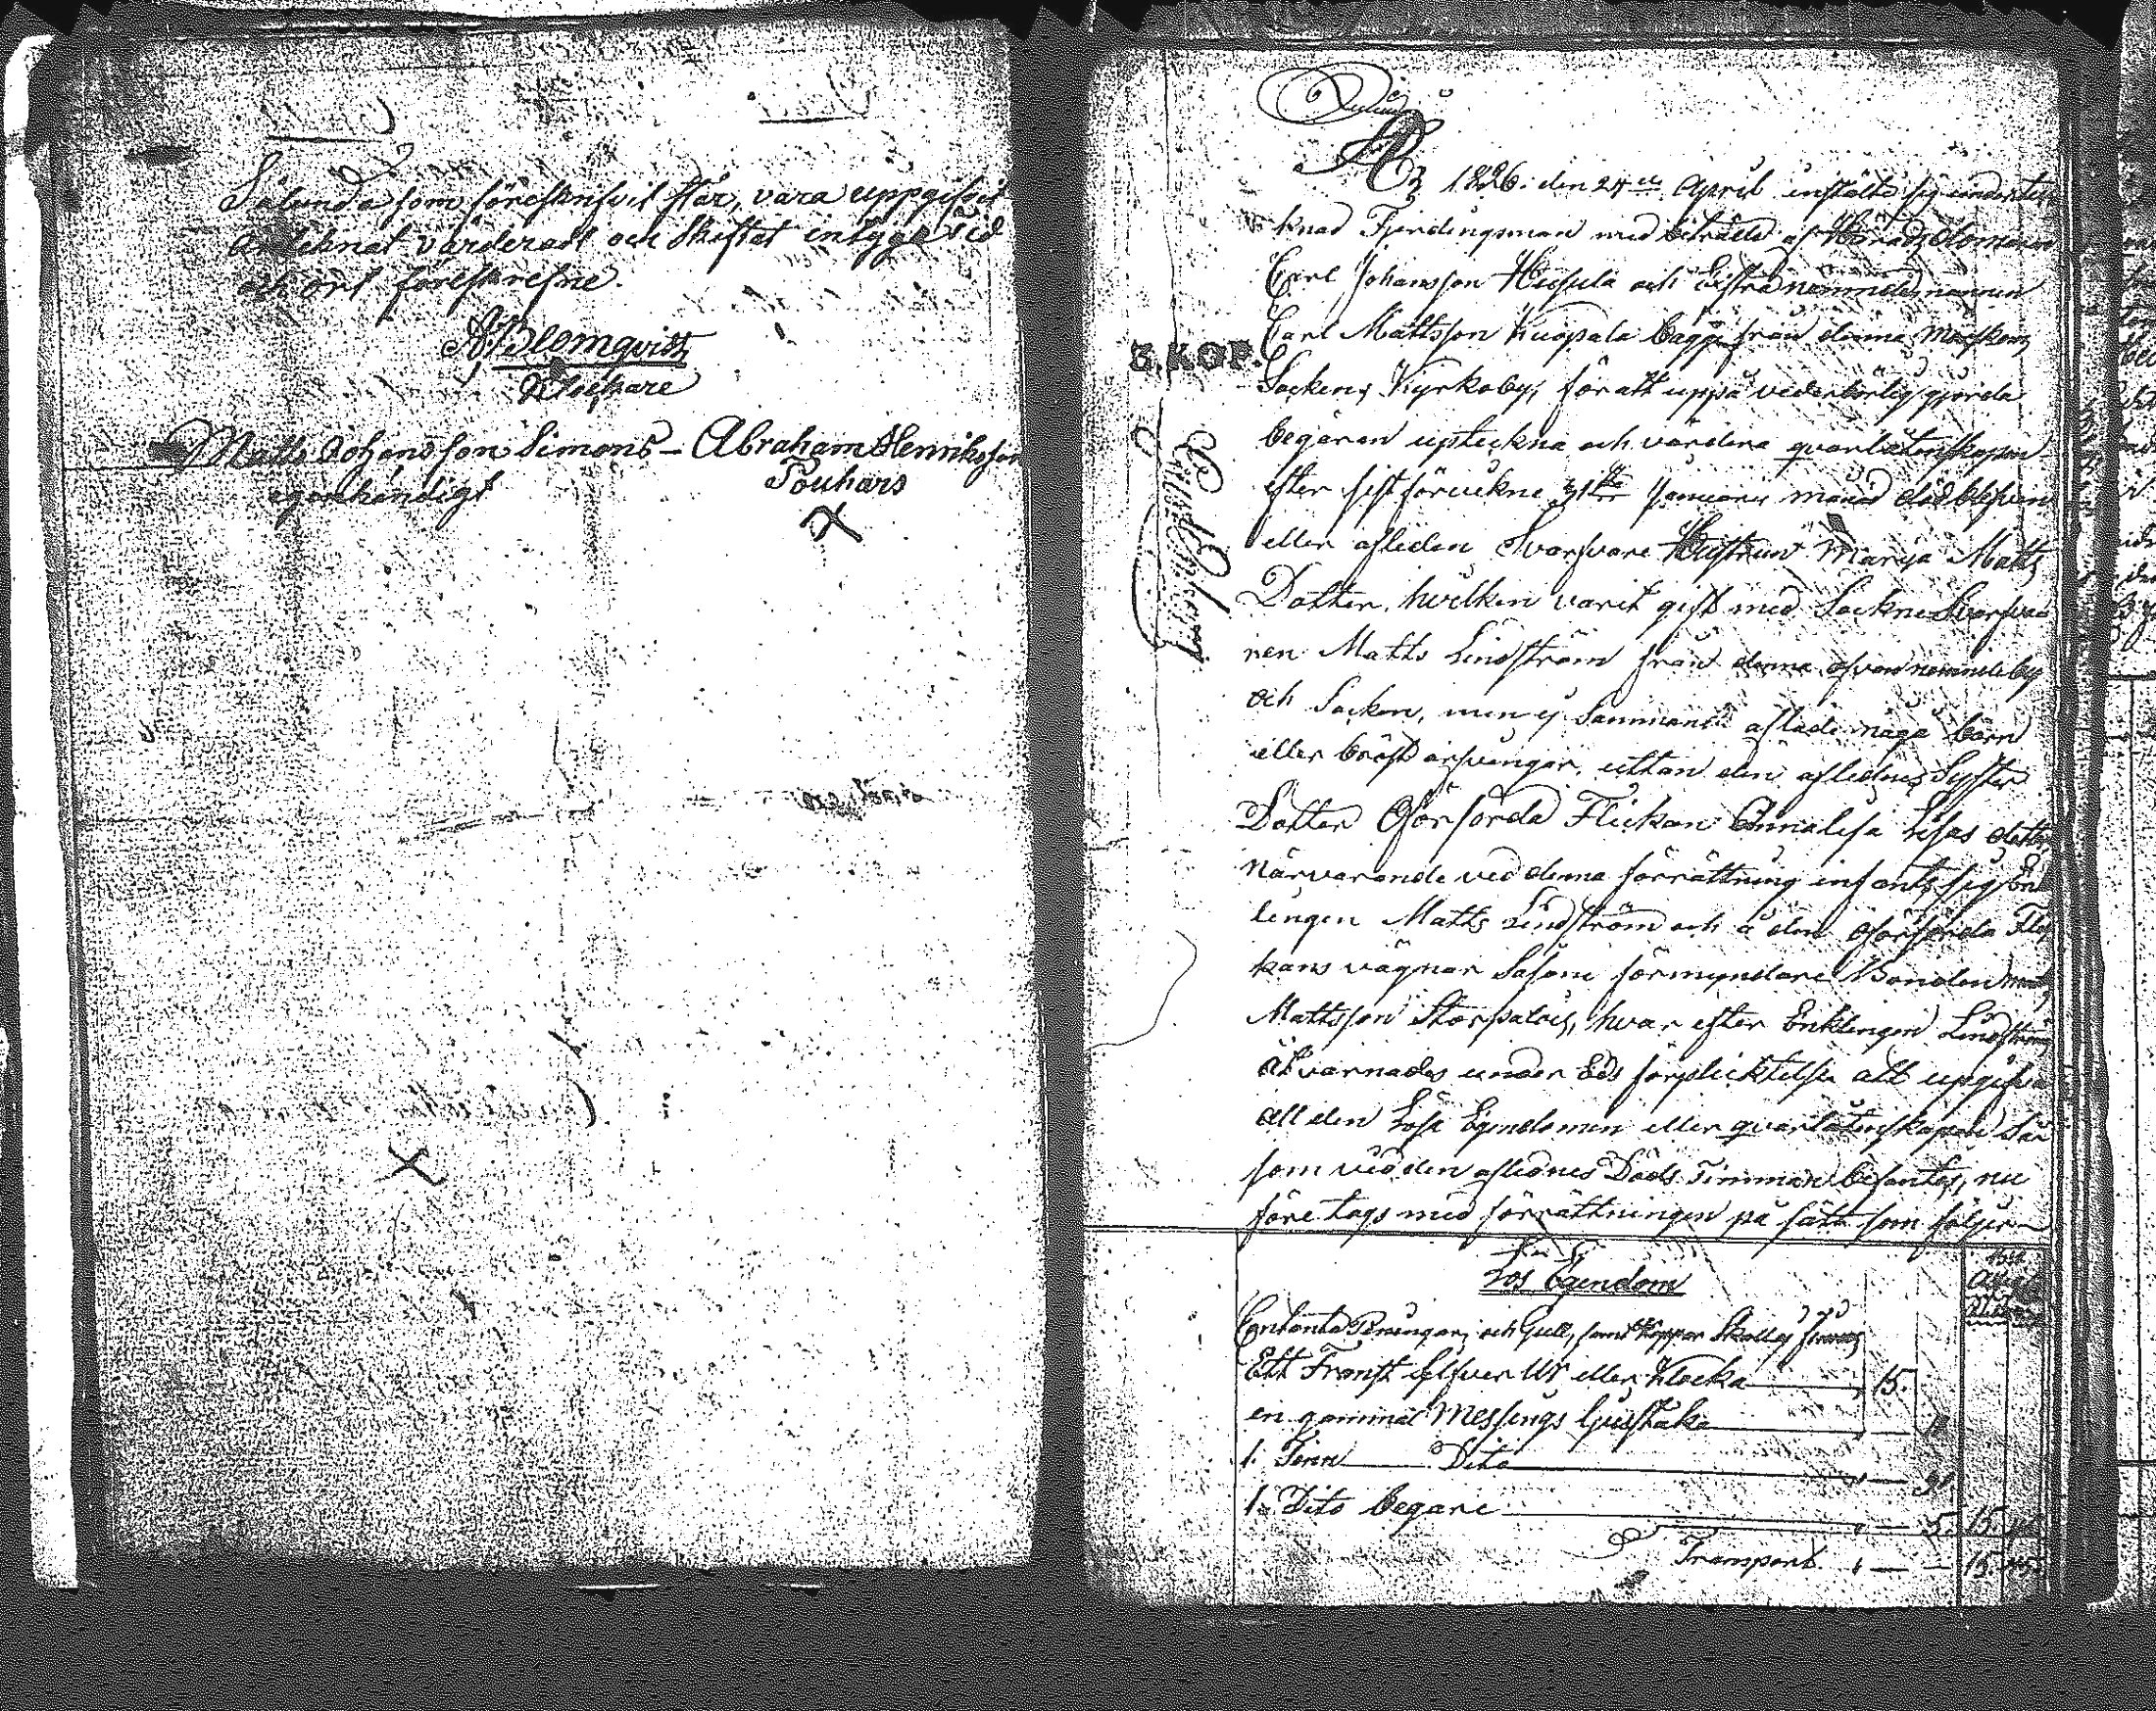 Sålunda som föreskrifvit står, vara uppgifvit
anteknat värderadt och skiftat intyga tid
och ort föreskrefne.
A Blomqvist
Klockare
Matts Johansson Simons – Abraham Henriksson
egenhändigt Pouhars
År 1826. den 24de April instälte sig undertek
knad Fjerdingsman med biträde af Härads Domaren
Carl Johansson Husula och Extra nämndemannen
Carl Mattsson Kuopala bägge från denna
3. KOP.
Sockens Kyrkoby, för att uppå vederbörlig gjorda
begäran upteckna och värdera qvarlåtenskapen
efter sist förvekne 31sta Januarii månad död blefven
eller afleden Svarfvare Hustrun Marija Matts
Dotter, hvilken varit gift med Sockne Svarfva
ren Matts Lindström från denna ofvannemnde by
och Socken, men ej sammans aflade någa barn
eller bröst arfvingar, uttan den aflednes Syster
Dotter Oförsörda Flickan Annalisa Lisas dotter
närvarande ved denna förrättning infants sig Enk
lingen Matts Lindström och å den oförsörda Flic
kans vägnar Såsom förmyndare Bonden Matts
Mattsson Storpalois, hvar efter Enklingen Lindström
åtvarnades under Eds förplicktelse att upgifva
all den Lösa Egendomen eller qvarlåtenskapen Så
som ved den aflednes Döds Timman befantes, nu
före togs med förrättningen på sätt som följer
Lös Egendom
Contanta Penningar, och Gull, samt Koppar Skillas finnes
Ett Franst silfver Ur eller Klocka 15.
en gammal Messings ljusstaka
1. Tenn Dito
1. Dito begare 5. 15.
Transport 15.